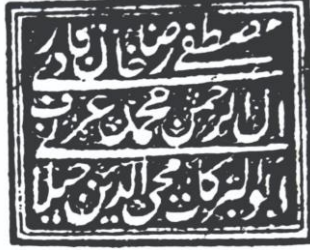 مصطفی رضا خان قادری
آل الرحمن محمد عرف
ابوالبرکات محی الدین جیلانی